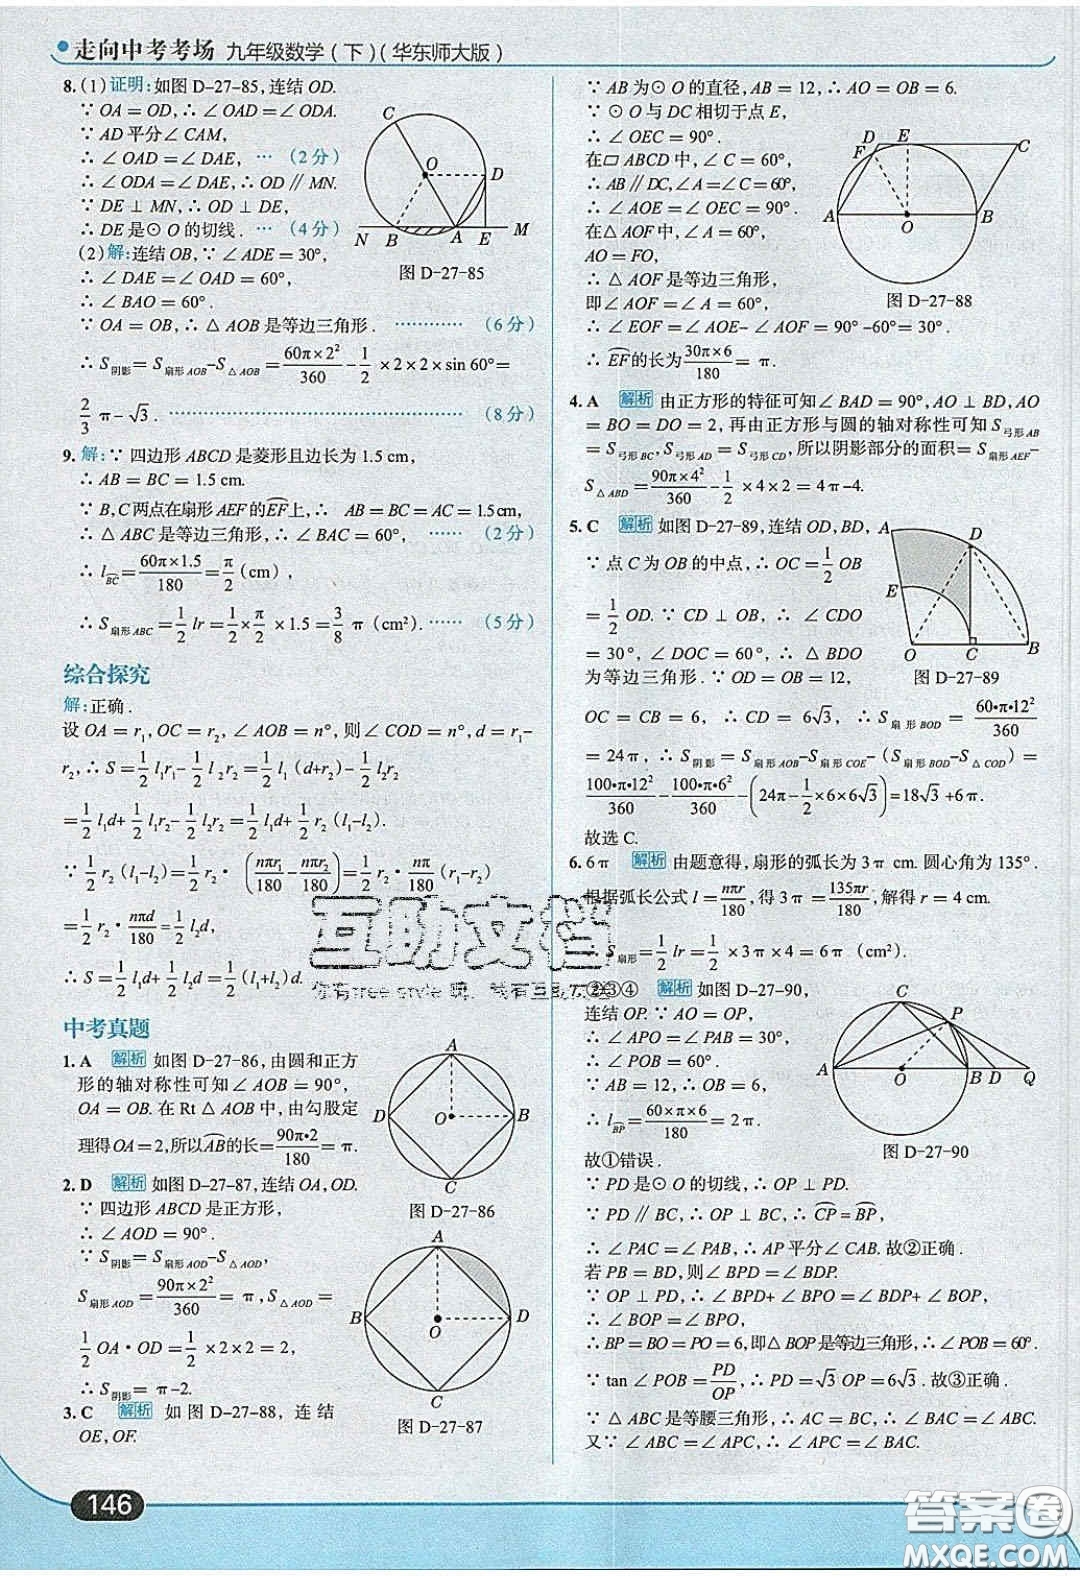 走向中考考场 九年级数学（下）（华东师大版）
8. (1) 证明: 如图 D-27-85, 连结 OD.
∵ OA = OD, ∴ ∠OAD = ∠ODA.
∵ AD 平分 ∠CAM,
∴ ∠OAD = ∠DAE, … (2分)
∴ ∠ODA = ∠DAE, ∴ OD ∥ MN.
∵ DE ⊥ MN, ∴ OD ⊥ DE,
∴ DE 是 ⊙O 的切线. … (4分)
(2) 解: 连结 OB, ∵ ∠ADE = 30°,
∴ ∠DAE = ∠OAD = 60°,
∴ ∠BAO = 60°.
C O D N B A E M
图 D-27-85
∵ OA = OB, ∴ △AOB 是等边三角形. ………… (6分)
∴ S阴影 = S扇形AOB - S△AOB = 60π×2²/360 - 1/2 ×2×2×sin 60° =
2/3 π-√3. ………………………………………… (8分)
9. 解: ∵ 四边形 ABCD 是菱形且边长为 1.5 cm,
∴ AB = BC = 1.5 cm.
∵ B, C 两点在扇形 AEF 的 EF 上, ∴ AB = BC = AC = 1.5 cm,
∴ △ABC 是等边三角形, ∴ ∠BAC = 60°, …… (2分)
∴ lBC = 60π×1.5/180 = π/2 (cm),
∴ S扇形ABC = 1/2 lr = 1/2 × π/2 ×1.5 = 3/8 π (cm²). …… (5分)
综合探究
解: 正确.
设 OA = r₁, OC = r₂, ∠AOB = n°, 则 ∠COD = n°, d = r₁-
r₂, ∴ S = 1/2 l₁r₁ - 1/2 l₂r₂ = 1/2 l₁ (d+r₂) - 1/2 l₂r₂
= 1/2 l₁d + 1/2 l₁r₂ - 1/2 l₂r₂ = 1/2 l₁d + 1/2 r₂ (l₁-l₂).
∵ 1/2 r₂ (l₁-l₂) = 1/2 r₂ · (nπr₁/180 - nπr₂/180) = 1/2 r₂ · nπ/180 (r₁-r₂)
= 1/2 r₂ · nπd/180 = 1/2 l₂d,
∴ S = 1/2 l₁d + 1/2 l₂d = 1/2 (l₁+l₂)d.
中考真题
1. A 解析 如图 D-27-86, 由圆和正方
形的轴对称性可知 ∠AOB = 90°,
OA = OB. 在 Rt △AOB 中, 由勾股定
理得 OA = 2, 所以 AB 的长 = 90π•2/180 = π.
A D O B C
图 D-27-86
2. D 解析 如图 D-27-87, 连结 OA, OD.
∵ 四边形 ABCD 是正方形,
∴ ∠AOD = 90°.
∵ S阴影 = S扇形AOD - S△AOD,
S扇形AOD = 90π×2²/360 = π, S△AOD =
1/2 OA·OD = 1/2 ×2×2 = 2,
∴ S阴影 = π-2.
A B D O C
图 D-27-87
3. C 解析 如图 D-27-88, 连结
OE, OF.
∵ AB 为 ⊙O 的直径, AB = 12, ∴ AO = OB = 6.
∵ ⊙O 与 DC 相切于点 E,
∴ ∠OEC = 90°.
在 ▱ABCD 中, ∠C = 60°,
∴ AB ∥ DC, ∠A = ∠C = 60°,
∴ ∠AOE = ∠OEC = 90°.
在 △AOF 中, ∠A = 60°,
AO = FO,
∴ △AOF 是等边三角形,
即 ∠AOF = ∠A = 60°.
D E C F A O B
图 D-27-88
∴ ∠EOF = ∠AOE - ∠AOF = 90° - 60° = 30°.
∴ EF 的长为 30π×6/180 = π.
4. A 解析 由正方形的特征可知 ∠BAD = 90°, AO ⊥ BD, AO
= BO = DO = 2, 再由正方形与圆的轴对称性可知 S弓形AB
= S弓形BC, S弓形AD = S弓形CD, 所以阴影部分的面积 = S扇形AEF -
S△ABD = 90π×4²/360 - 1/2 ×4×2 = 4π-4.
5. C 解析 如图 D-27-89, 连结 OD, BD,
∵ 点 C 为 OB 的中点, ∴ OC = 1/2 OB
= 1/2 OD. ∵ CD ⊥ OB, ∴ ∠CDO
= 30°, ∠DOC = 60°, ∴ △BDO
为等边三角形. ∵ OD = OB = 12,
A D E O C B
图 D-27-89
OC = CB = 6, ∴ CD = 6√3, ∴ S扇形BOD = 60•π•12²/360
= 24π, ∴ S阴影 = S扇形AOB - S扇形COE - (S扇形BOD - S△COD) =
100•π•12²/360 - 100•π•6²/360 - (24π - 1/2 ×6×6√3) = 18√3 + 6π.
故选 C.
6. 6π 解析 由题意得, 扇形的弧长为 3π cm. 圆心角为 135°.
根据弧长公式 l = nπr/180, 得 3π = 135πr/180, 解得 r = 4 cm.
∴ S扇形 = 1/2 lr = 1/2 ×3π×4 = 6π (cm²).
7. ②③④ 解析 如图 D-27-90,
连结 OP. ∵ AO = OP,
∴ ∠APO = ∠PAB = 30°,
∴ ∠POB = 60°.
∵ AB = 12, ∴ OB = 6,
∴ lBP = 60×π×6/180 = 2π,
故①错误.
C P A O B D Q
图 D-27-90
∵ PD 是 ⊙O 的切线, ∴ OP ⊥ PD.
∵ PD ∥ BC, ∴ OP ⊥ BC, ∴ CP = BP,
∴ ∠PAC = ∠PAB, ∴ AP 平分 ∠CAB. 故②正确.
若 PB = BD, 则 ∠BPD = ∠BDP.
∵ OP ⊥ PD, ∴ ∠BPD + ∠BPO = ∠BDP + ∠BOP,
∴ ∠BOP = ∠BPO,
∴ BP = BO = PO = 6, 即 △BOP 是等边三角形, ∴ ∠POB = 60°.
∵ tan ∠POB = PD/OP, ∴ PD = √3 OP = 6√3. 故③正确.
∵ △ABC 是等腰三角形, ∴ AC = BC, ∴ ∠BAC = ∠ABC.
又∵ ∠ABC = ∠APC, ∴ ∠APC = ∠BAC.
互助文档
146
答案圈
MXQE.COM